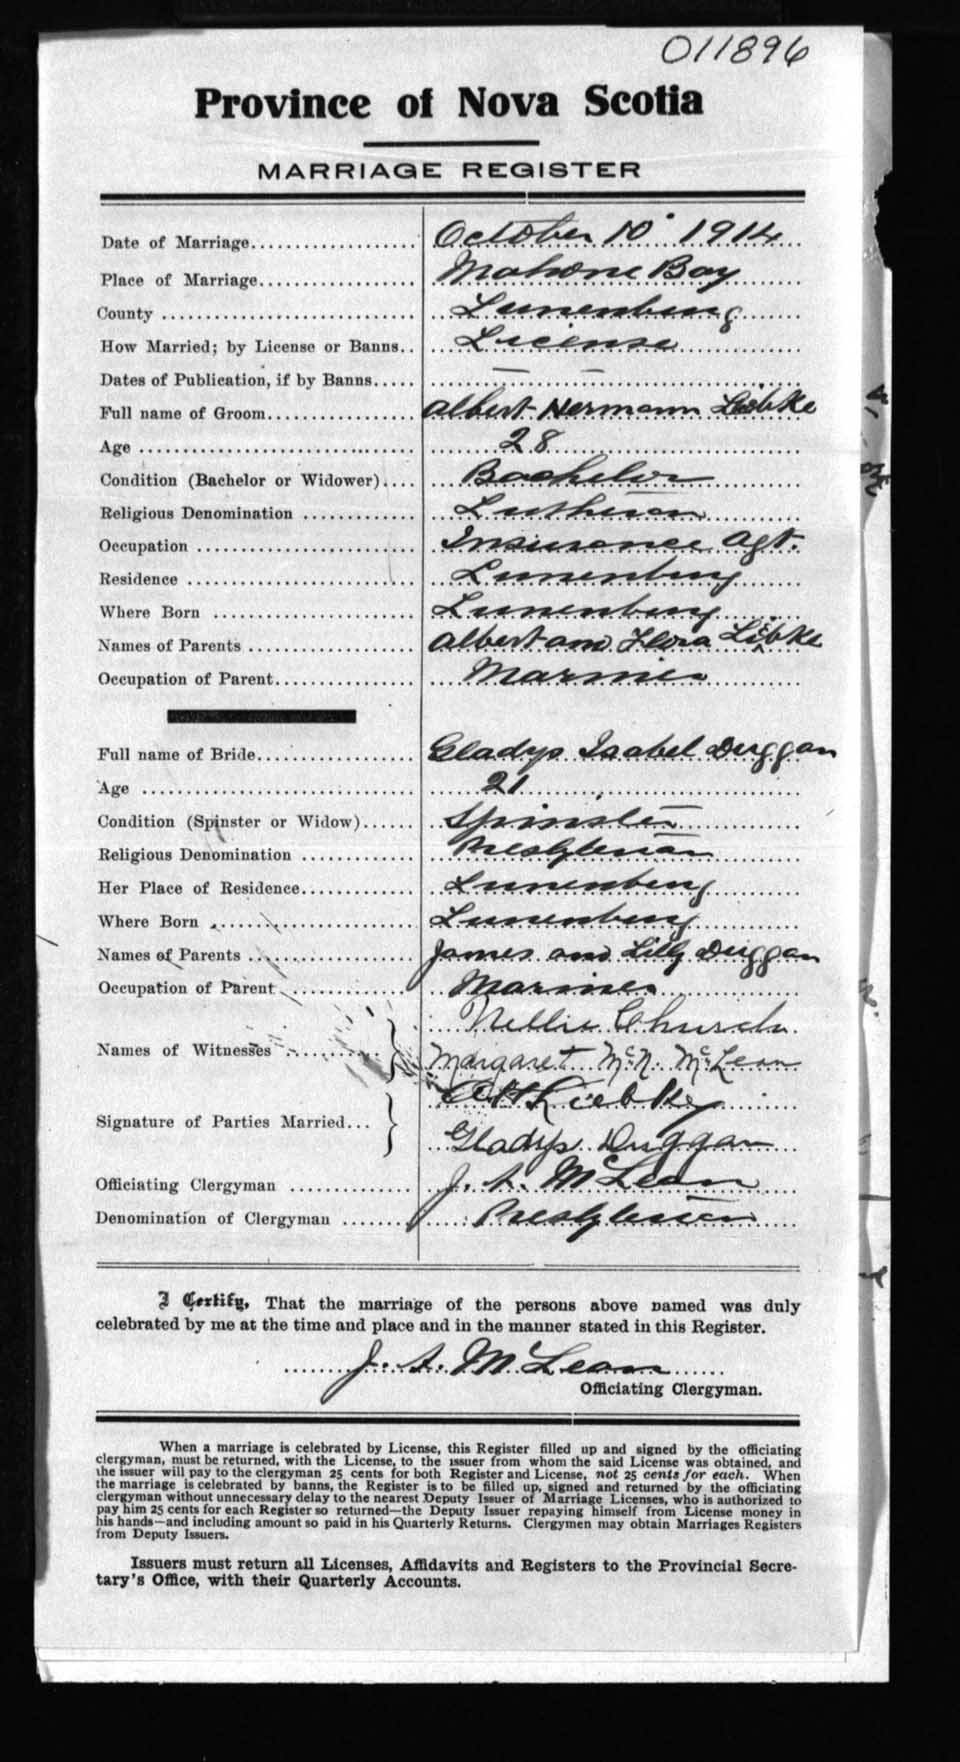 011896
Province of Nova Scotia
MARRIAGE REGISTER
Date of Marriage................... October 10 1914
Place of Marriage................... Mahone Bay
County ............................ Lunenburg
How Married; by License or Banns.. License
Dates of Publication, if by Banns..... — —
Full name of Groom................ Albert Hermann
Age ............................... 28
Condition (Bachelor or Widower).... Bachelor
Religious Denomination ............. Lutheran
Occupation ........................ Insurance Agt.
Residence ......................... Lunenburg
Where Born ...................... Lunenburg
Names of Parents .................. Albert and Flora
Occupation of Parent................ Mariner
Full name of Bride.................. Gladys Isabel Duggan
Age .............................. 21
Condition (Spinster or Widow)...... Spinster
Religious Denomination ............. Presbyterian
Her Place of Residence............. Lunenburg
Where Born ....................... Lunenburg
Names of Parents .................. James and Lilly Duggan
Occupation of Parent .............. Mariner
Nellie Church
Names of Witnesses ..........
Margaret McN. McLean
Signature of Parties Married...
Gladys Duggan
Officiating Clergyman ............. J. A. McLean
Denomination of Clergyman ....... Presbyterian
I Certify, That the marriage of the persons above named was duly
celebrated by me at the time and place and in the manner stated in this Register.
J. A. McLean
Officiating Clergyman.
When a marriage is celebrated by License, this Register filled up and signed by the officiating
clergyman, must be returned, with the License, to the issuer from whom the said License was obtained, and
the issuer will pay to the clergyman 25 cents for both Register and License, not 25 cents for each. When
the marriage is celebrated by banns, the Register is to be filled up, signed and returned by the officiating
clergyman without unnecessary delay to the nearest Deputy Issuer of Marriage Licenses, who is authorized to
pay him 25 cents for each Register so returned—the Deputy Issuer repaying himself from License money in
his hands—and including amount so paid in his Quarterly Returns. Clergymen may obtain Marriages Registers
from Deputy Issuers.
Issuers must return all Licenses, Affidavits and Registers to the Provincial Secre-
tary's Office, with their Quarterly Accounts.